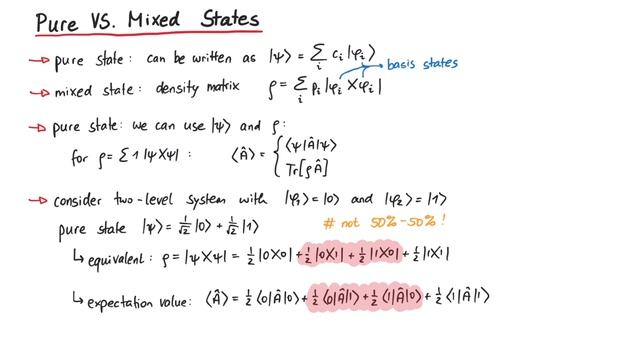 Pure VS. Mixed States
→ pure state: can be written as |ψ⟩ = ∑ᵢ cᵢ |φᵢ⟩
basis states
→ mixed state: density matrix ρ = ∑ᵢ pᵢ |φᵢ⟩⟨φᵢ|
→ pure state: we can use |ψ⟩ and ρ:
for ρ = ∑ 1 |ψ⟩⟨ψ| : ⟨Â⟩ = { ⟨ψ|Â|ψ⟩
Tr[ρÂ]
→ consider two-level system with |φ₁⟩ = |0⟩ and |φ₂⟩ = |1⟩
pure state |ψ⟩ = 1/√2 |0⟩ + 1/√2 |1⟩ # not 50% - 50% !
↳ equivalent: ρ = |ψ⟩⟨ψ| = 1/2 |0⟩⟨0| + 1/2 |0⟩⟨1| + 1/2 |1⟩⟨0| + 1/2 |1⟩⟨1|
↳ expectation value: ⟨Â⟩ = 1/2 ⟨0|Â|0⟩ + 1/2 ⟨0|Â|1⟩ + 1/2 ⟨1|Â|0⟩ + 1/2 ⟨1|Â|1⟩